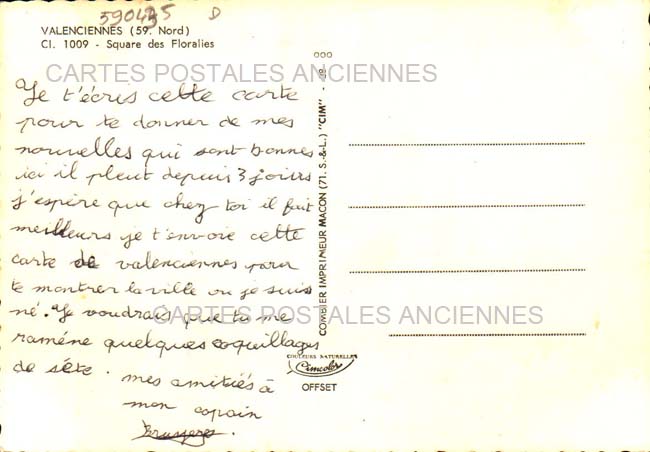 590435 D
VALENCIENNES (59. Nord)
CI. 1009 - Square des Floralies
CARTES POSTALES ANCIENNES
Je t'écris cette carte
pour te donner de mes
nouvelles qui sont bonnes
ici il pleut depuis 3 joirs
j'espère que chez toi il fait
meilleurs je t'envoie cette
carte de valenciennes pour
te montrer la ville ou je suis
né. Je voudrais que tu me
ramène quelques coquillages
de séte.
mes amitiés à
mon copain
CARTES POSTALES ANCIENNES
COMBIER IMPRIMEUR MACON (71. S.-&-L.) "CIM" -
COULEURS NATURELLES
Cimcolor
OFFSET